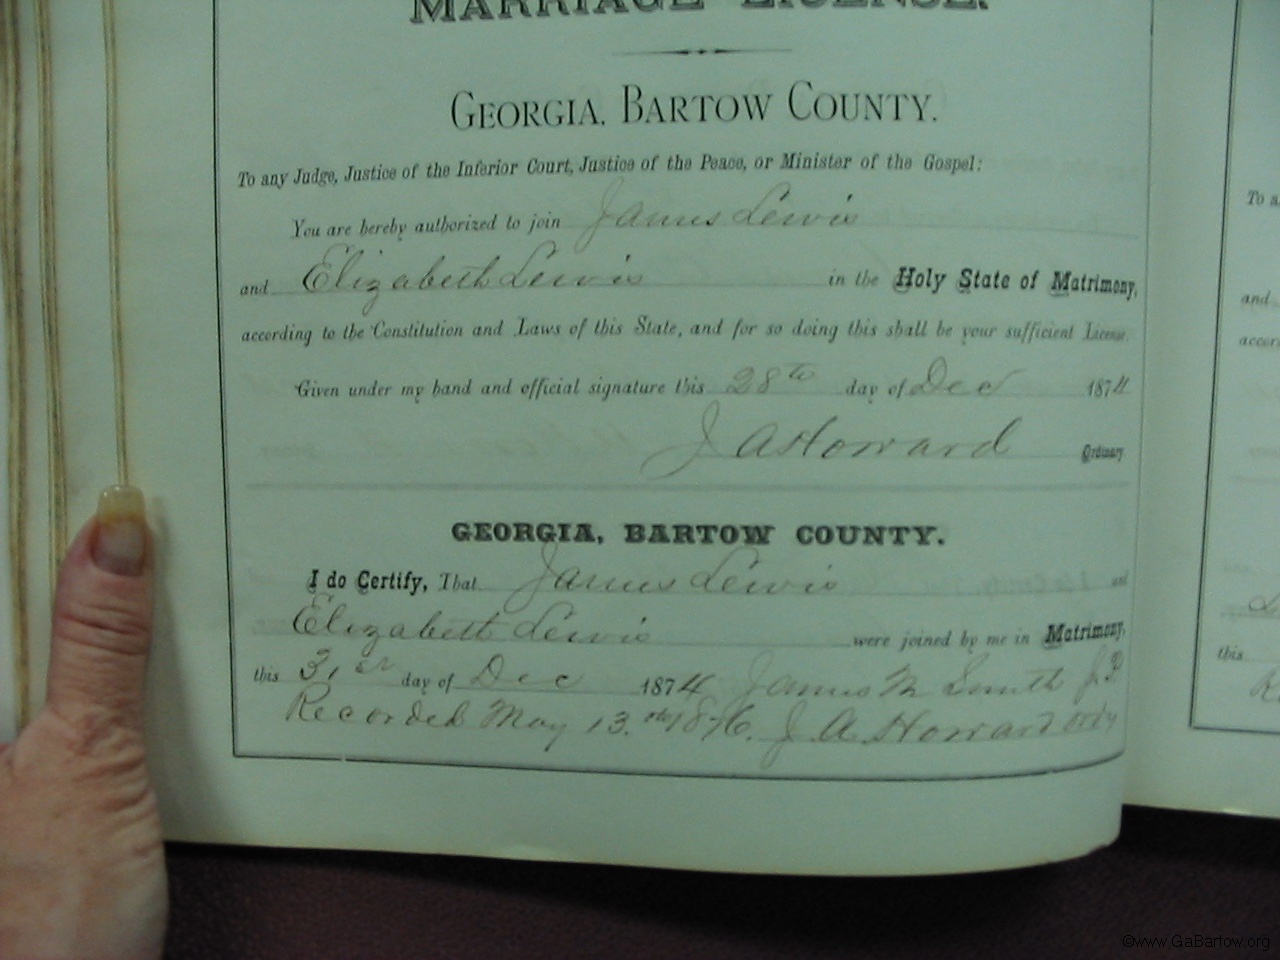 MARRIAGE LICENSE.
GEORGIA, BARTOW COUNTY.
To any Judge, Justice of the Inferior Court, Justice of the Peace, or Minister of the Gospel:
You are hereby authorized to join James Lewis
and Elizabeth Lewis in the Holy State of Matrimony,
according to the Constitution and Laws of this State, and for so doing this shall be your sufficient License.
Given under my hand and official signature this 28th day of Dec 1874
J A Howard Ordinary
GEORGIA, BARTOW COUNTY.
I do Certify, That James Lewis and
Elizabeth Lewis were joined by me in Matrimony,
this 31st day of Dec 1874 James M Smith J.P.
Recorded May 13. 1876. J. A. Howard Ordy
To a
and
accor
this
©www.GaBartow.org